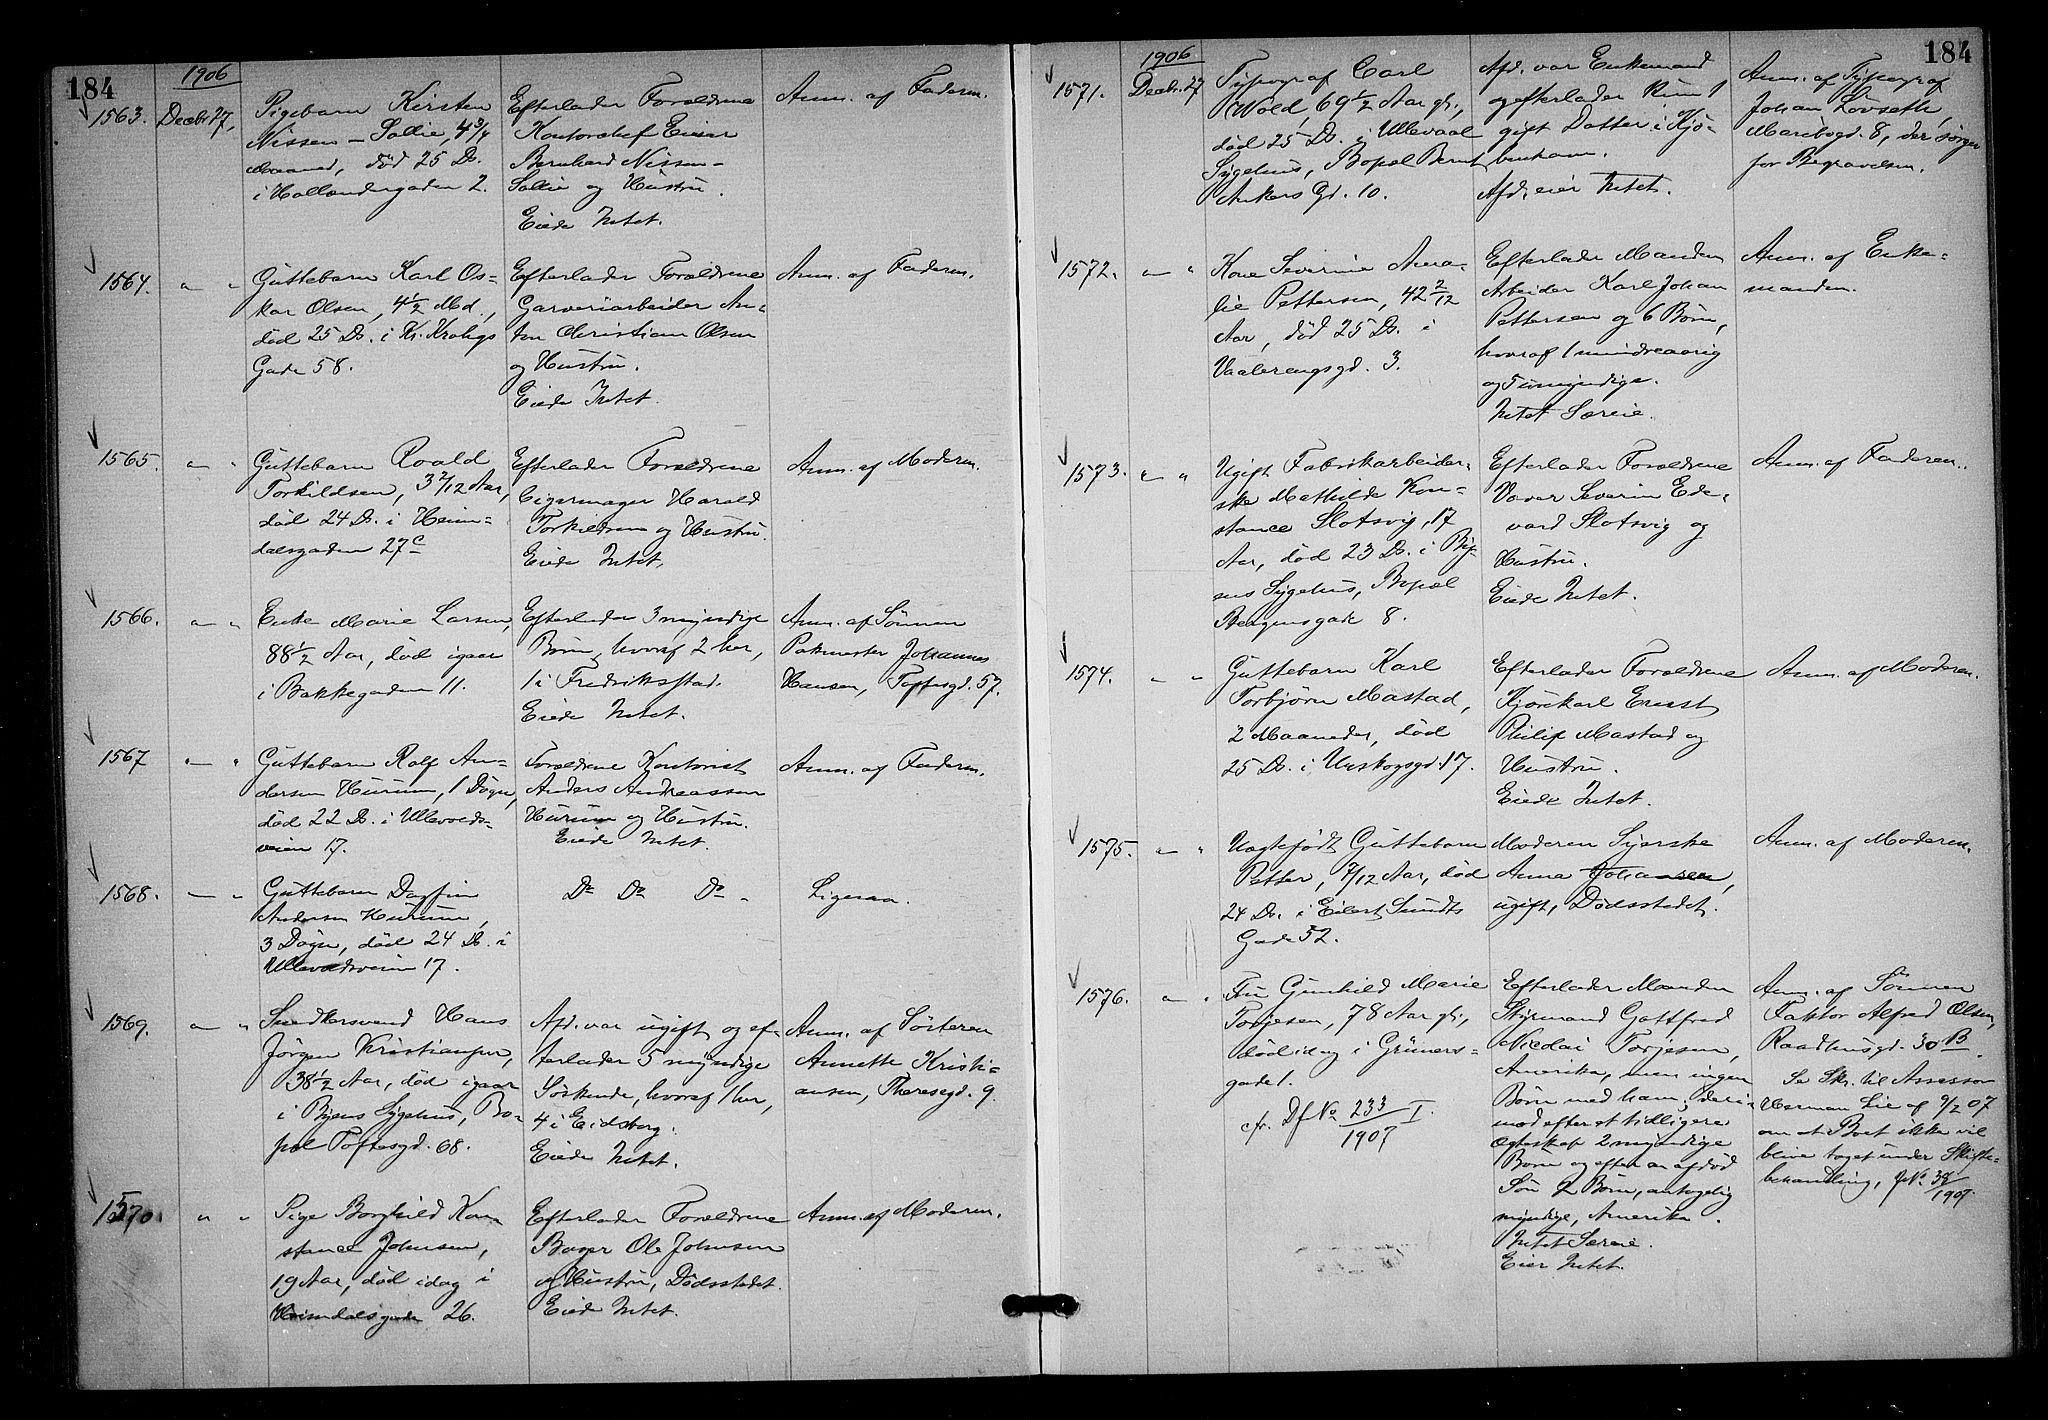 184
1906
1563. Decbr 27,
Pigebarn Kirsten
Nissen-Sollie, 4 3/4
Maaned, død 25 Ds.
i Hollændergaden 2.
Efterlader Forældrene
Kontorchef Einar
Bernhard Nissen-
Sollie og Hustru.
Eiede Intet.
Anm. af Faderen.
1564. " "
Guttebarn Karl Os-
kar Olsen, 4 1/2 Md.,
død 25 Ds. i Kr. Krohgs
Gade 58.
Efterlader Forældrene
Garveriarbeider An-
ton Christian Olsen
og Hustru.
Eiede Intet.
Anm. af Faderen.
1565. " "
Guttebarn Roald
Torkildsen, 3 2/12 Aar,
død 24 Ds. i Heim-
dalsgaden 27 c
Efterlader Forældrene
Cigarmager Harald
Torkildsen og Hustru.
Eiede Intet.
Anm. af Moderen.
1566. " "
Enke Marie Larsen,
88 1/2 Aar, død igaar
i Bakkegaden 11.
Efterlader 3 myndige
Børn, hvoraf 2 her,
1 i Fredriksstad.
Eiede Intet.
Anm. af Sønnen
Pakmester Johannes
Hansen, Toftesgd. 57.
1567 " "
Guttebarn Rolf An-
dersen Hurum, 1 Døgn,
død 22 Ds. i Ullevolds-
veien 17.
Forældrene Kontorist
Anders Andreassen
Hurum og Hustru.
Eiede Intet.
Anm. af Faderen.
1568. " "
Guttebarn Dagfin
Andersen Hurum,
3 Døgn, død 24 Ds. i
Ullevoldsveien 17.
Do Do Do.
Ligesaa.
1569. " "
Snedkersvend Hans
Jørgen Kristiansen,
38 1/2 Aar, død igaar
i Byens Sygehus, Bo-
pæl Toftesgd. 68.
Afd. var ugift og ef-
terlader 5 myndige
Søskende, hvoraf 1 her,
4 i Eidsberg.
Eiede Intet.
Anm. af Søsteren
Annette Kristi-
ansen, Theresegd. 9.
1570. " "
Pige Borghild Kon-
stance Johnsen,
19 Aar, død idag i
Heimdalsgaden 26.
Efterlader Forældrene
Bager Ole Johnsen
og Hustru, Dødsstedet.
Eiede Intet.
Anm. af Moderen.
184
1906
1571. Decbr. 27
Typograf Carl
Wold, 69 1/2 Aar gl.,
død 25 Ds. i Ullevaal
Sygehus, Bopæl Bernt
Ankers Gd. 10.
Afd. var Enkemand
og efterlader kun 1
gift Datter i Kjø-
benhavn.
Afd. eier Intet.
Anm. af Typograf
Johan Løvseth,
Maribogd. 8, der sørger
for Begravelsen.
1572. " "
Kone Severine Ama-
lie Pettersen, 42 2/12
Aar, død 25 Ds. i
Vaalerengsgd. 3.
Efterlader Manden
Arbeider Karl Johan
Pettersen og 6 Børn,
hvoraf 1 mindreaarig
og 5 umyndige.
Intet Særeie.
Anm. af Enke-
manden.
1573. " "
Ugift Fabrikarbeider-
ske Mathilde Kon-
stance Slotsvig, 17
Aar, død 23 Ds. i By-
ens Sygehus, Bopæl
Gade 8.
Efterlader Forældrene
Væver Severin Ed-
vard Slotsvig og
Hustru.
Eiede Intet.
Anm. af Faderen.
1574. " "
Guttebarn Karl
Torbjørn Mastad,
2 Maaneder, død
25 Ds. i Urskogsgd. 17.
Efterlader Forældrene
Kjørekarl Ernst
Philip Mastad og
Hustru.
Eiede Intet.
Anm. af Moderen.
1575. " "
Uægtefødt Guttebarn
Petter, 7/12 Aar, død
24 Ds. i Eilert Sundts
Gade 52.
Moderen Syerske
Anna Johansen,
ugift, Dødsstedet.
Anm. af Moderen.
1576. " "
Fru Gunhild Marie
Torjesen, 78 Aar gl.,
død idag i Grüners-
gade 1.
cfr. Df No 233/1907 I.
Efterlader Manden
Styrmand Gottfred
Nicolai Torjesen,
Amerika, men ingen
Børn med ham, deri-
mod efter et tidligere
Ægteskab 2 myndige
Børn og efter en afdød
Søn 2 Børn, antagelig
myndige, Amerika.
Intet Særeie.
Eier Intet.
Anm. af Sønnen
Faktor Alfred Olsen,
Raadhusgd. 30 B.
Se Skr. til Assessor
Herman Lie af 9/2 07
om at Boet ikke vil
blive taget under Skifte-
behandling, No 39/1907.